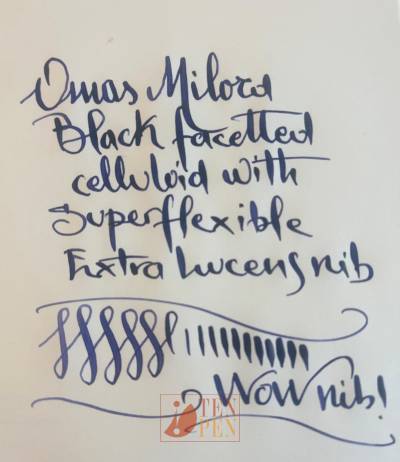 Omas Milord
Black facetted
celluloid with
Superflexible
Extra Lucens nib
WOW nib!
TEN
PEN